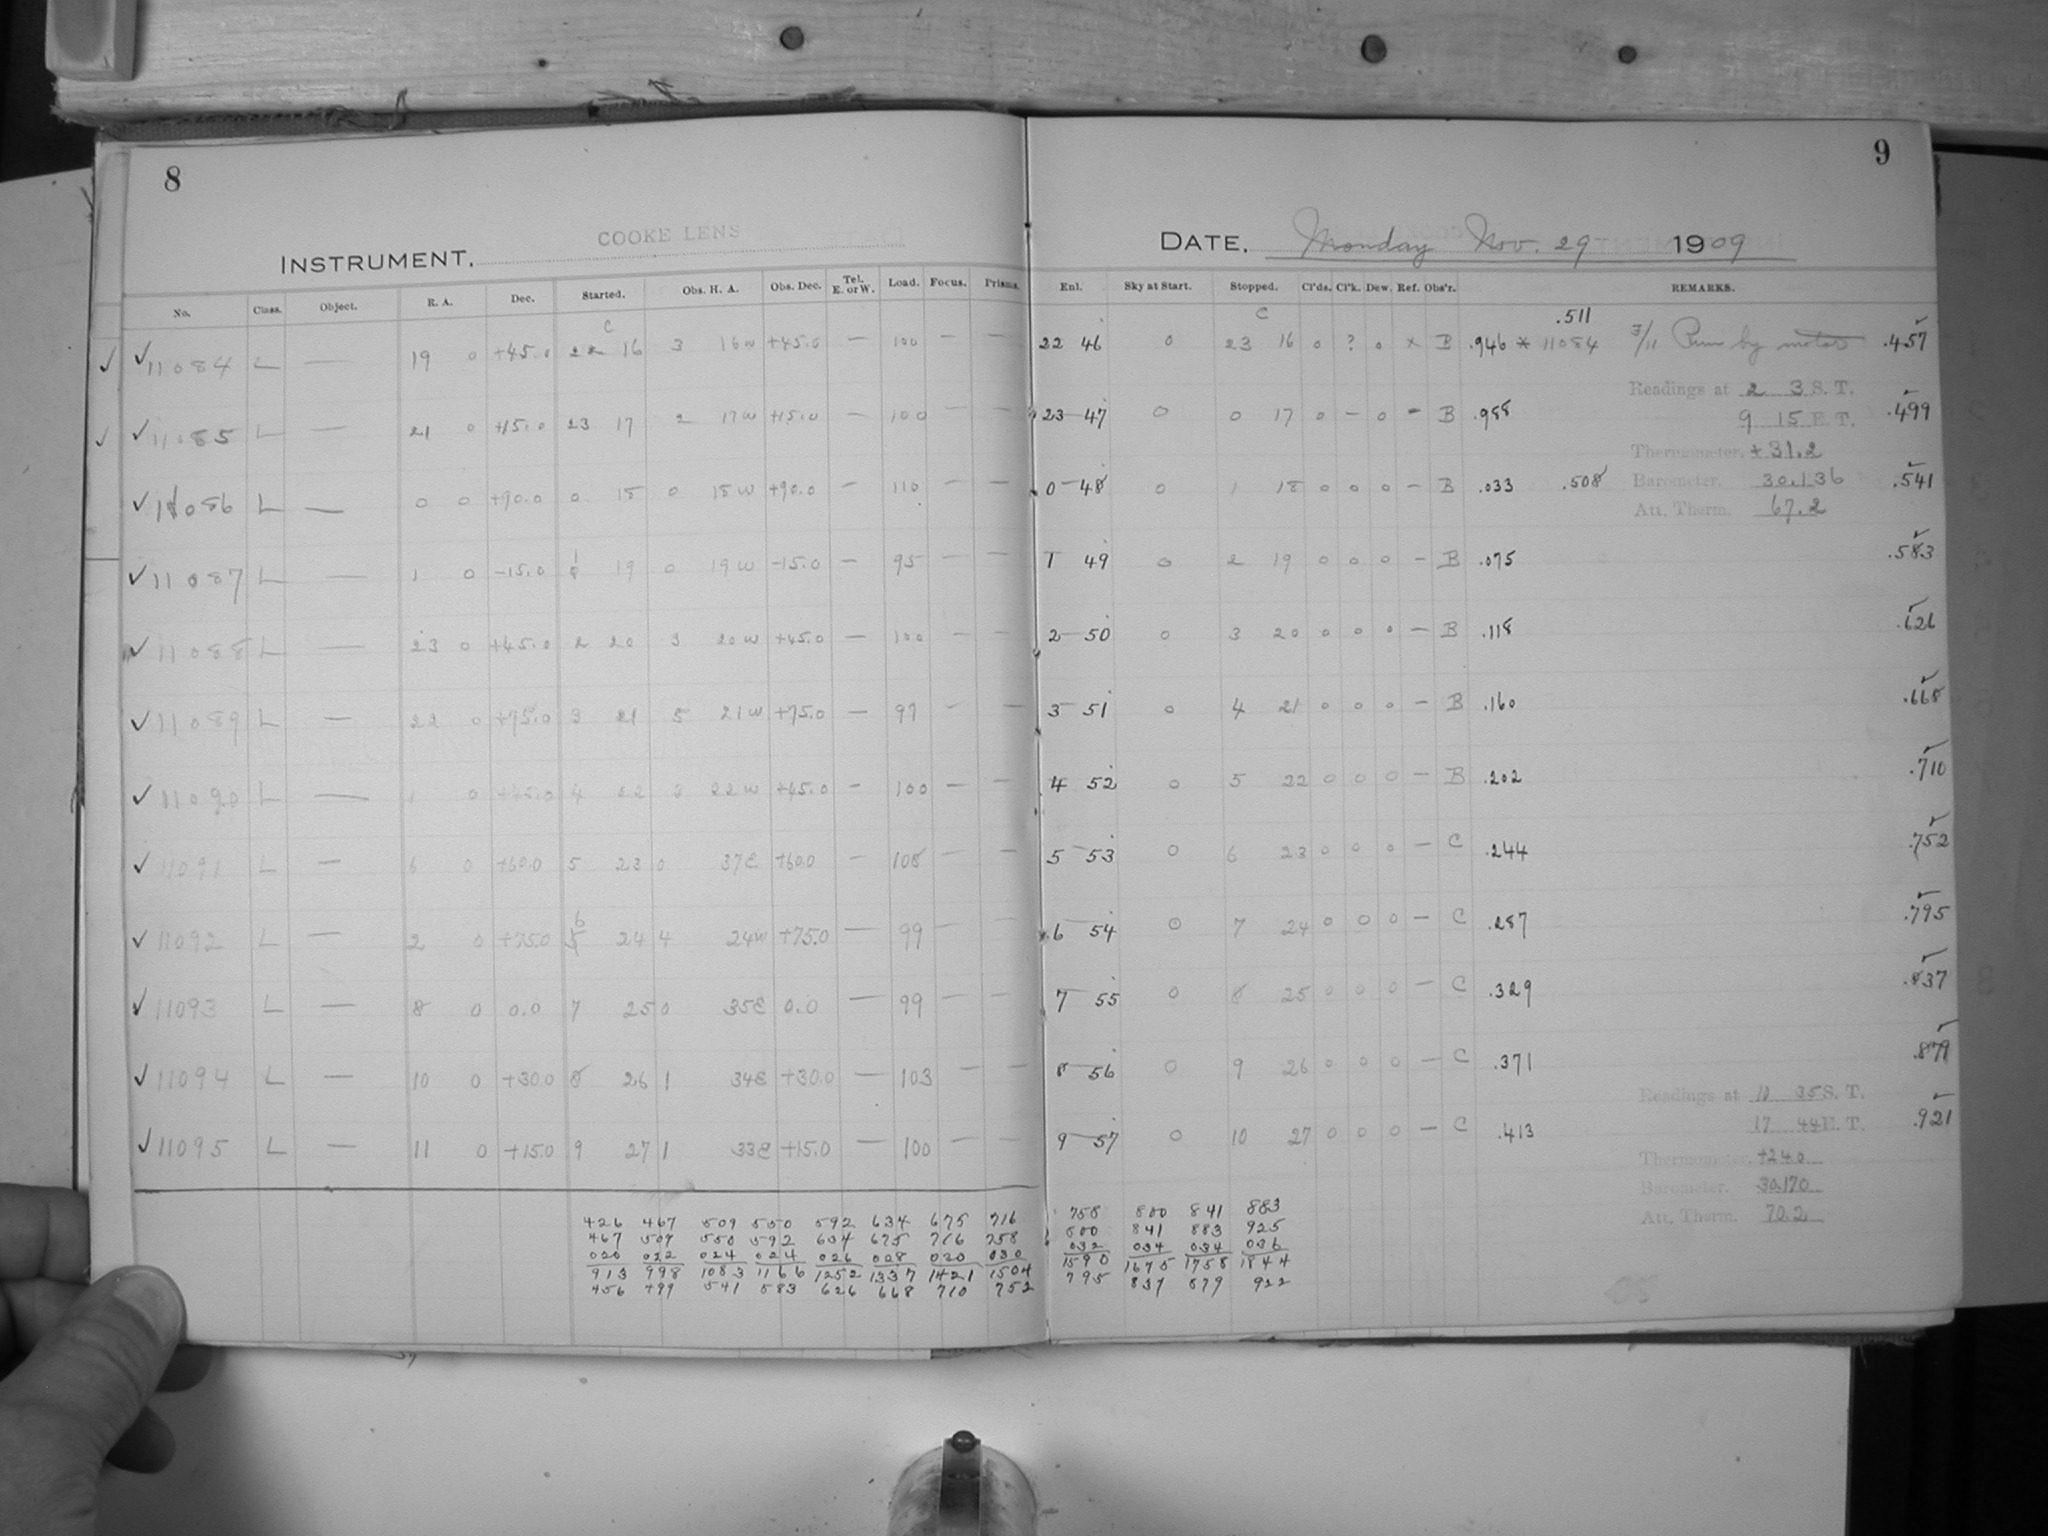 8
9
INSTRUMENT. COOKE LENS
DATE. Monday Nov. 29 1909
No. Class. Object. R. A. Dec. Started. Obs. H. A. Obs. Dec. Tel. E. or W. Load. Focus. Prisms. Enl. Sky at Start. Stopped. Cl'ds. Cl'k. Dew. Ref. Obs'r. REMARKS.
C C .511
✓ ✓ 11084 L — 19 0 +45.0 22 16 3 16 w +45.0 — 100 — — 22 46 0 23 16 0 ? 0 x B .946 * 11084 3/11 Run by motor .457
Readings at 2 3 S. T.
✓ ✓ 11085 L — 21 0 +15.0 23 17 2 17 w +15.0 — 100 — — 23 47 0 0 17 0 — 0 — B .988 .499
9 15 E. T.
Thermometer. +31.2
✓ 11086 L — 0 0 +90.0 0 18 0 18 w +90.0 — 110 — — 0 48 0 1 18 0 0 0 — B .033 .508 Barometer. 30.136 .541
Att. Therm. 67.2
✓ 11087 L — 1 0 -15.0 1 19 0 19 w -15.0 — 95 — — 1 49 0 2 19 0 0 0 — B .075 .583
✓ 11088 L — 23 0 +45.0 2 20 3 20 w +45.0 — 100 — — 2 50 0 3 20 0 0 0 — B .118 .626
✓ 11089 L — 22 0 +75.0 3 21 5 21 w +75.0 — 97 — — 3 51 0 4 21 0 0 0 — B .160 .668
✓ 11090 L — 1 0 +45.0 4 22 3 22 w +45.0 — 100 — — 4 52 0 5 22 0 0 0 — B .202 .710
✓ 11091 L — 6 0 +60.0 5 23 0 37 E +60.0 — 108 — — 5 53 0 6 23 0 0 0 — C .244 .752
✓ 11092 L — 2 0 +75.0 6 24 4 24 w +75.0 — 99 — — 6 54 0 7 24 0 0 0 — C .287 .795
✓ 11093 L — 8 0 0.0 7 25 0 35 E 0.0 — 99 — — 7 55 0 8 25 0 0 0 — C .329 .837
✓ 11094 L — 10 0 +30.0 8 26 1 34 E +30.0 — 103 — — 8 56 0 9 26 0 0 0 — C .371 .879
Readings at 10 35 S. T.
✓ 11095 L — 11 0 +15.0 9 27 1 33 E +15.0 — 100 — — 9 57 0 10 27 0 0 0 — C .413 .921
17 44 E. T.
Thermometer. +24.0
Barometer. 30.170
Att. Therm. 70.2
426 467 509 550 592 634 675 716 758 800 841 883
467 509 550 592 634 675 716 758 800 841 883 925
020 022 024 024 026 028 030 030 032 034 034 036
913 998 1083 1166 1252 1337 1421 1504 1590 1675 1758 1844
456 499 541 583 626 668 710 752 795 837 879 922